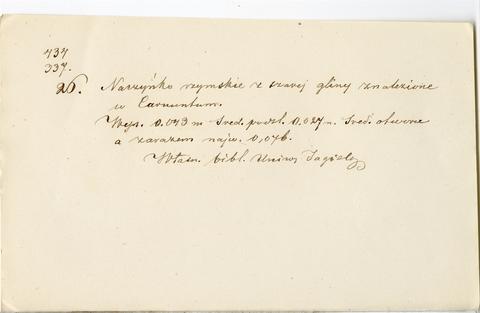 434
337.
26. Naczyńko rzymskie z szarej gliny znalezione
w Carnuntum.
Wys. 0.043 m Śred. podst. 0.027 m. Śred. otworu
a zarazem najw. 0,046.
Własn. bibl. Uniwers Jagiell